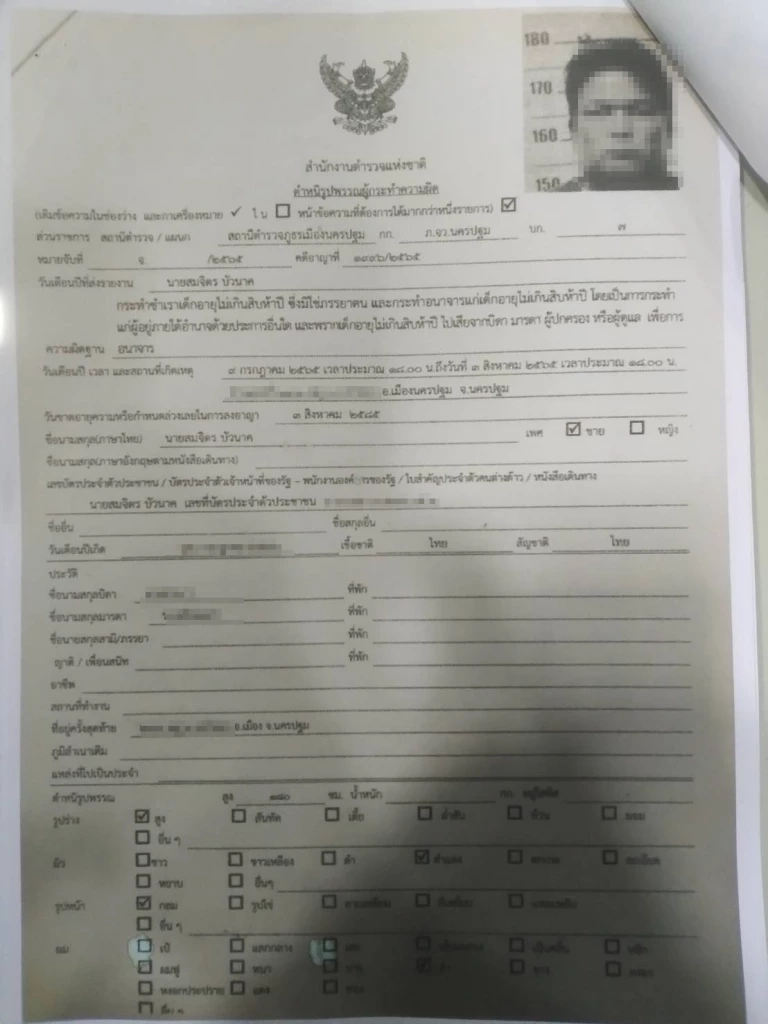 180
170
160
150
สำนักงานตำรวจแห่งชาติ
ตำหนิรูปพรรณผู้กระทำความผิด
(เติมข้อความในช่องว่าง และกาเครื่องหมาย ✓ ใน ☐ หน้าข้อความที่ต้องการได้มากกว่าหนึ่งรายการ) ☑
ส่วนราชการ สถานีตำรวจ / แผนก สถานีตำรวจภูธรเมืองนครปฐม กก. ภ.จว.นครปฐม บก. ๗
หมายจับที่ จ. /๒๕๖๕ คดีอาญาที่ ๑๙๙๖/๒๕๖๕
วันเดือนปีที่ส่งรายงาน นายสมจิตร บัวนาค
กระทำชำเราเด็กอายุไม่เกินสิบห้าปี ซึ่งมิใช่ภรรยาตน และกระทำอนาจารแก่เด็กอายุไม่เกินสิบห้าปี โดยเป็นการกระทำ
แก่ผู้อยู่ภายใต้อำนาจด้วยประการอื่นใด และพรากเด็กอายุไม่เกินสิบห้าปี ไปเสียจากบิดา มารดา ผู้ปกครอง หรือผู้ดูแล เพื่อการ
ความผิดฐาน อนาจาร
วันเดือนปี เวลา และสถานที่เกิดเหตุ ๙ กรกฎาคม ๒๕๖๕ เวลาประมาณ ๑๘.๐๐ น.ถึงวันที่ ๓ สิงหาคม ๒๕๖๕ เวลาประมาณ ๑๘.๐๐ น.
อ.เมืองนครปฐม จ.นครปฐม
วันขาดอายุความหรือกำหนดล่วงเลยในการลงอาญา ๓ สิงหาคม ๒๕๘๕
ชื่อนามสกุล(ภาษาไทย) นายสมจิตร บัวนาค เพศ ☑ ชาย ☐ หญิง
ชื่อนามสกุล(ภาษาอังกฤษตามหนังสือเดินทาง)
เลขบัตรประจำตัวประชาชน / บัตรประจำตัวเจ้าหน้าที่ของรัฐ - พนักงานองค์การของรัฐ / ใบสำคัญประจำตัวคนต่างด้าว / หนังสือเดินทาง
นายสมจิตร บัวนาค เลขที่บัตรประจำตัวประชาชน
ชื่ออื่น ชื่อสกุลอื่น
วันเดือนปีเกิด เชื้อชาติ ไทย สัญชาติ ไทย
ประวัติ
ชื่อนามสกุลบิดา ที่พัก
ชื่อนามสกุลมารดา ที่พัก
ชื่อนามสกุลสามี/ภรรยา ที่พัก
ญาติ / เพื่อนสนิท ที่พัก
อาชีพ
สถานที่ทำงาน
ที่อยู่ครั้งสุดท้าย อ.เมือง จ.นครปฐม
ภูมิลำเนาเดิม
แหล่งที่ไปเป็นประจำ
ตำหนิรูปพรรณ สูง ๑๘๐ ซม. น้ำหนัก กก.
รูปร่าง ☑ สูง ☐ สันทัด ☐ เตี้ย ☐ ล่ำสัน ☐ อ้วน ☐ ผอม
☐ อื่น ๆ
ผิว ☐ ขาว ☐ ขาวเหลือง ☐ ดำ ☑ ดำแดง ☐ ☐
☐ หยาบ ☐ อื่นๆ
รูปหน้า ☑ กลม ☐ รูปไข่ ☐ สามเหลี่ยม ☐ สี่เหลี่ยม ☐
☐ อื่น ๆ
ผม ☐ เป๋ ☐ แสกกลาง ☐ ☐ ☐ ☐ หยิก
☐ ผมฟู ☐ หนา ☐ บาง ☑ ☐ ขาว ☐
☐ หงอกประปราย ☐ แดง ☐
☐ อื่น ๆ